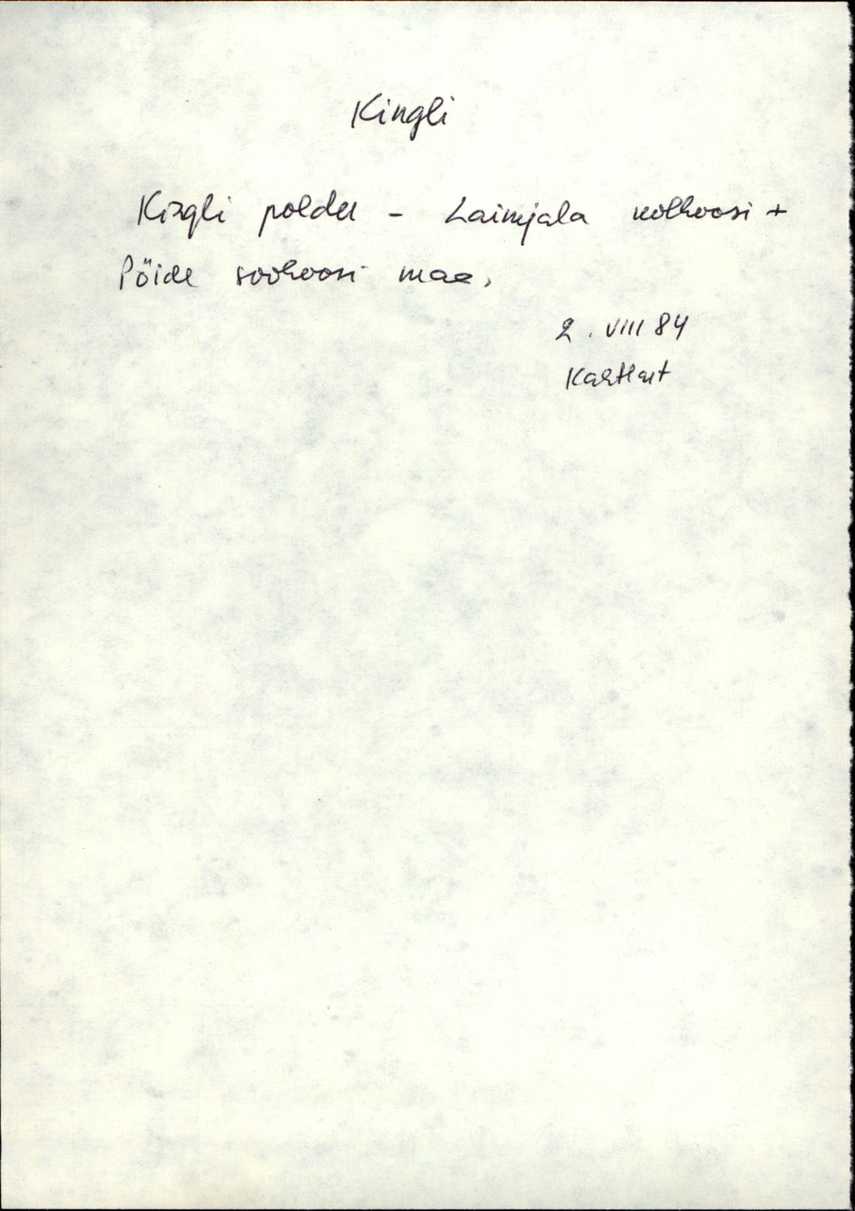 Kingli
Kingli polder - Laimjala kolhoosi +
Pöide sovhoosi maa,
2. VIII 84